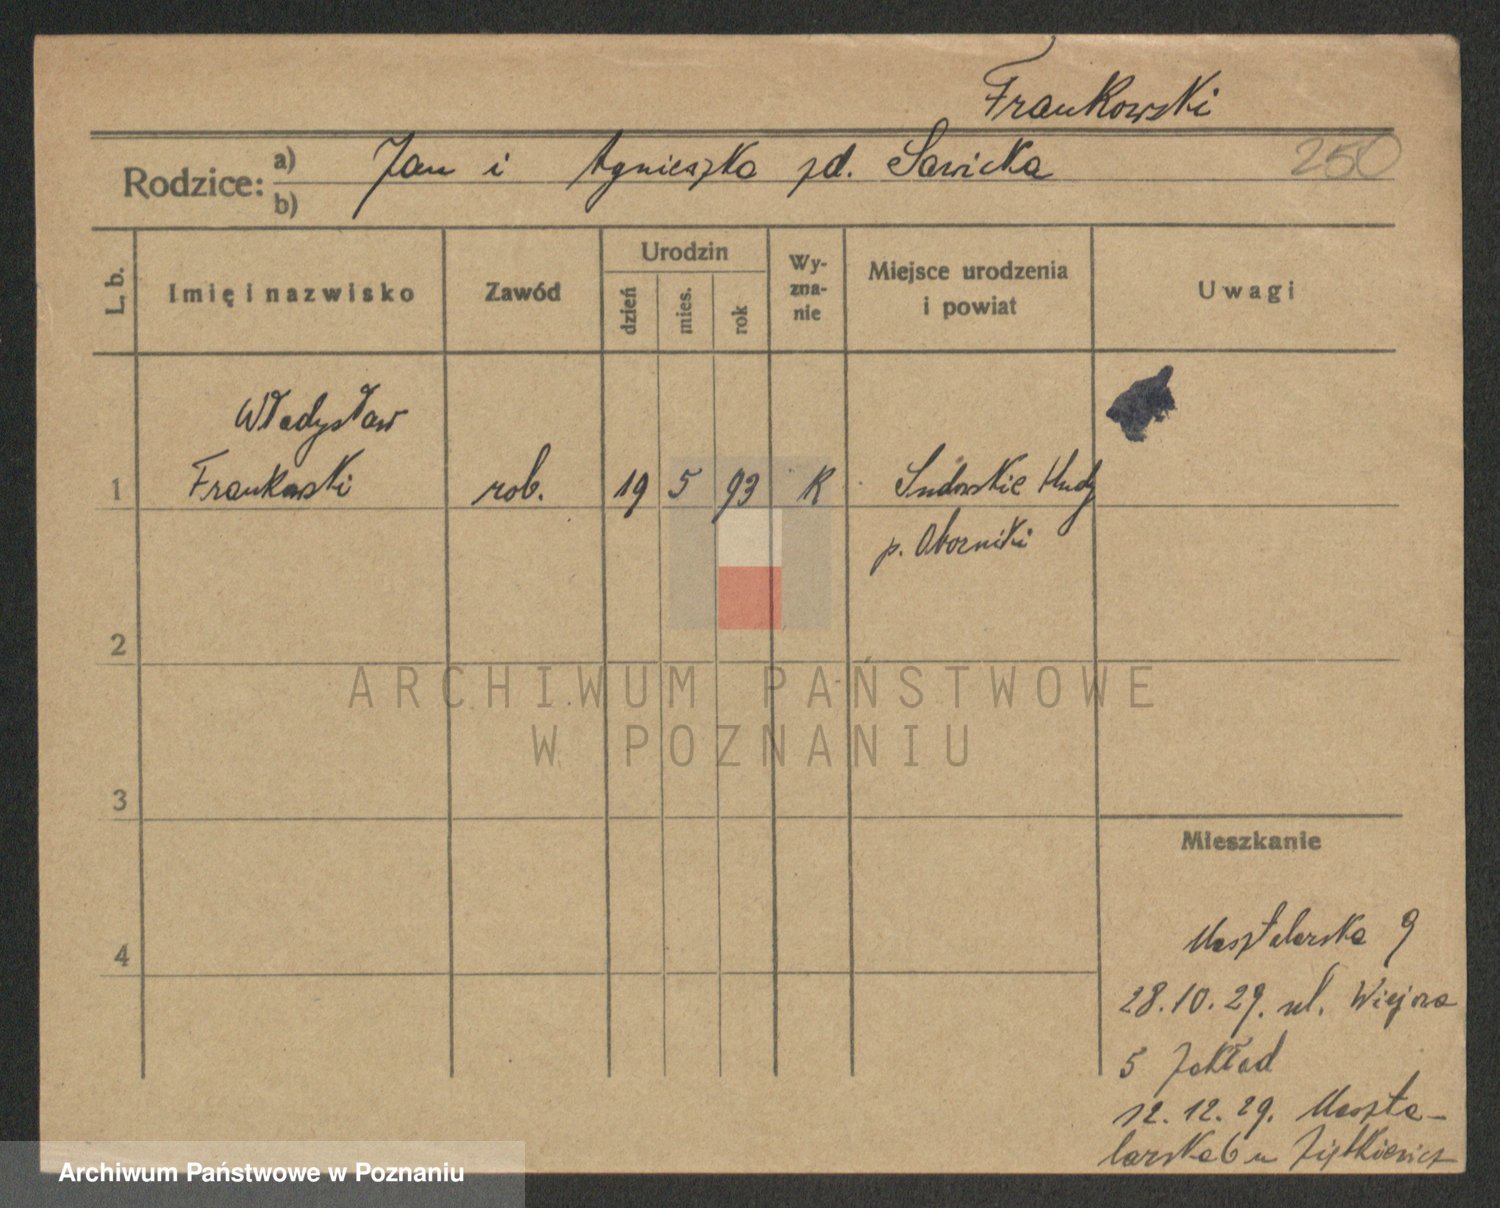 Frankowski
250
Rodzice: a) Jan i Agnieszka zd. Sawicka
b)
L. b. Imię i nazwisko Zawód Urodzin dzień mies. rok Wyznanie Miejsce urodzenia i powiat Uwagi
Władysław
1 Frankowski rob. 19 5 93 K
p. Oborniki
2
ARCHIWUM PAŃSTWOWE
W POZNANIU
3
Mieszkanie
4
Masztalarska 9
28.10.29. ul. Wiejska
5 Zakład
12.12.29. Maszta-
larska 6 u Ziętkiewicz
Archiwum Państwowe w Poznaniu